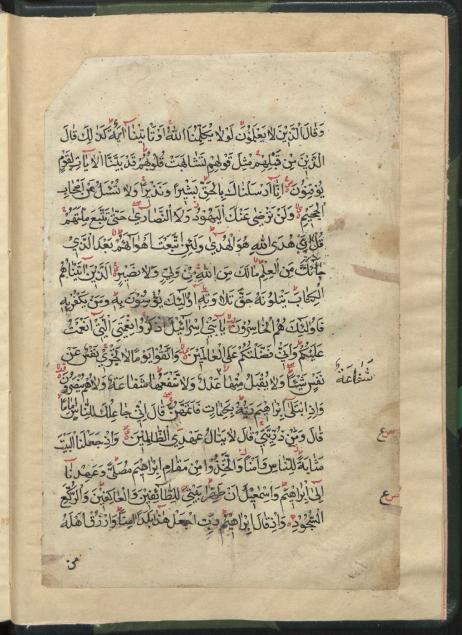 وقال الذين لا يعلمون لولا يكلمنا الله او تاتينا آية كذلك قال
الذين من قبلهم مثل قولهم تشابهت قلوبهم قد بينا الايات لقوم
يوقنون انا ارسلناك بالحق بشيرا ونذيرا ولا تسئل عن اصحاب
الجحيم ولن ترضى عنك اليهود ولا النصارى حتى تتبع ملتهم
قل ان هدى الله هو الهدى ولئن اتبعت اهواءهم بعد الذي
جاءك من العلم مالك من الله من ولي ولا نصير الذين اتيناهم
الكتاب يتلونه حق تلاوته اولئك يؤمنون به ومن يكفر به
فاولئك هم الخاسرون يا بني اسرائيل اذكروا نعمتي التي انعمت
عليكم واني فضلتكم على العالمين واتقوا يوما لا تجزي نفس عن
نفس شيئا ولا يقبل منها عدل ولا تنفعها شفاعة ولا هم ينصرون
شفاعة
واذ ابتلى ابراهيم ربه بكلمات فاتمهن قال اني جاعلك للناس اماما
قال ومن ذريتي قال لا ينال عهدي الظالمين واذ جعلنا البيت
مثابة للناس وامنا واتخذوا من مقام ابراهيم مصلى وعهدنا
الى ابراهيم واسمعيل ان طهرا بيتي للطائفين والعاكفين والركع
السجود واذ قال ابراهيم رب اجعل هذا بلدا امنا وارزق اهله
من